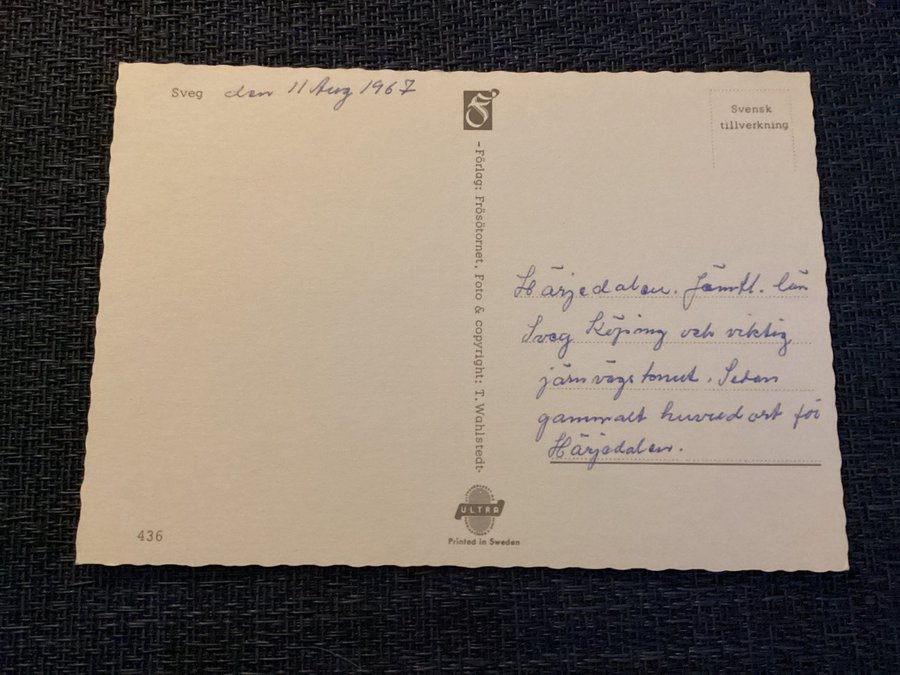 Sveg den 11 Aug 1967
Svensk
tillverkning
- Förlag: Frösötornet. Foto & copyright: T. Wahlstedt-
Härjedalen. Jämtl. län
Sveg Köping och viktig
järnvägsknut. Sedan
gammalt huvudort för
Härjedalen.
436
ULTRA
Printed in Sweden